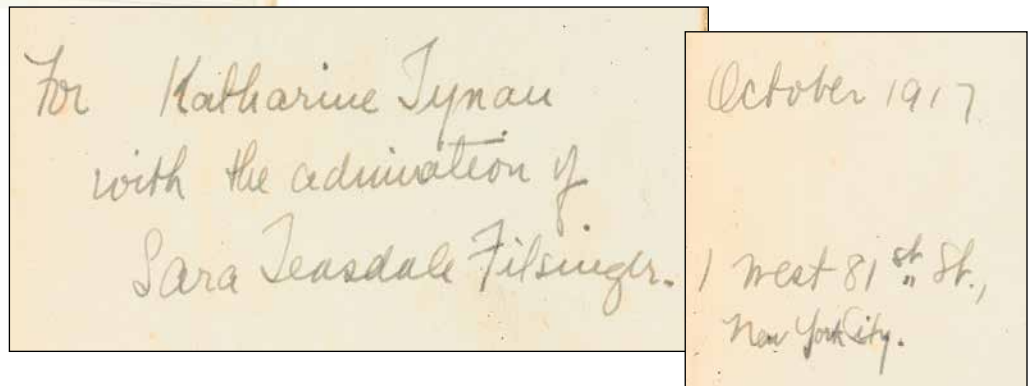 For Katharine Tynan
with the admiration of
Sara Teasdale Filsinger.
October 1917
1 West 81st St.,
New York City.